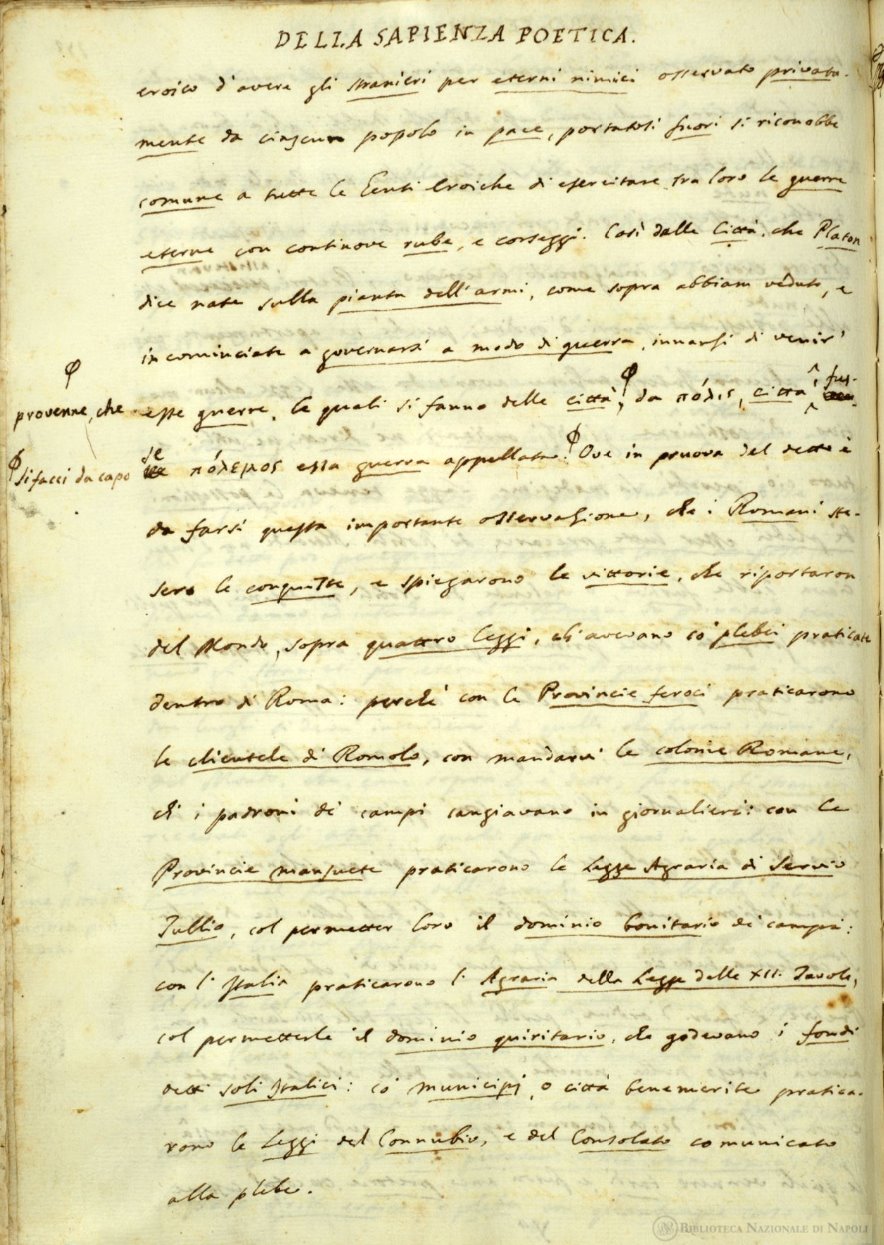 DELLA SAPIENZA POETICA.
eroico d'avere gli stranieri per eterni nimici osservato privata-
mente da ciascun popolo in pace, portatosi fuori si riconobbe
comune a tutte le Genti Eroiche di esercitare tra loro le guerre
eterne con continove rube, e corseggi. Così dalle Città, che Platon
dice nate sulla pianta dell'armi, come sopra abbiam veduto, e
incominciate a governarsi a modo di guerra, innanzi di venir'
provenne, che
esse guerre, le quali si fanno delle città, da πόλις, città, fus-
se πόλεμος essa guerra appellata. Ove in pruova del detto è
si facci da capo
da farsi questa importante osservazione, che i Romani ste-
sero le conquiste, e spiegarono le vittorie, che riportaron
del Mondo, sopra quattro leggi, ch'avevano co' plebei praticate
dentro di Roma: perché con le Provincie feroci praticarono
le clientele di Romolo, con mandarvi le colonie Romane,
ch'i padroni de' campi cangiavano in giornalieri: con le
Provincie mansuete praticarono la Legge Agraria di Servio
Tullio, col permetter loro il dominio bonitario de' campi:
con l'Italia praticarono l'Agraria della Legge delle XII. Tavole,
col permetterle il dominio quiritario, che godevano i fondi
detti soli Italici: co' municipj, o città benemerite pratica-
rono le Leggi del Connubio, e del Consolato comunicato
alla plebe.
BIBLIOTECA NAZIONALE DI NAPOLI